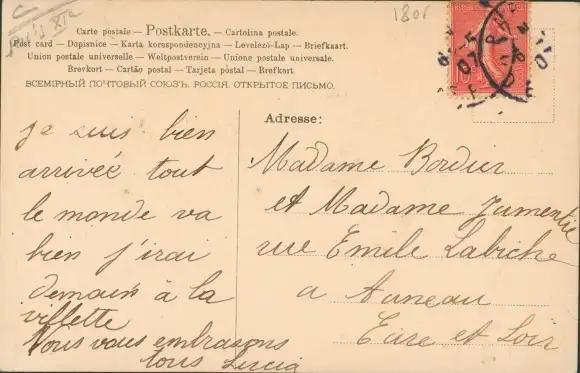 Carte postale — Postkarte. — Cartolina postale.
Post card — Dopisnice — Karta korespondencyjna — Levelező-Lap — Briefkaart.
Union postale universelle — Weltpostverein — Unione postale universale.
Brevkort — Cartão postal — Tarjeta postal — Brefkort
ВСЕМІРНЫЙ ПОЧТОВЫЙ СОЮЗЪ. РОССІЯ. ОТКРЫТОЕ ПИСЬМО.
Adresse:
je suis bien
arrivée tout
le monde va
bien j'irai
demain à la
villette
Nous vous embrasons
tous Lucia
Madame Bordier
et Madame Jumentié
rue Emile Labiche
a Auneau
Eure et Loir